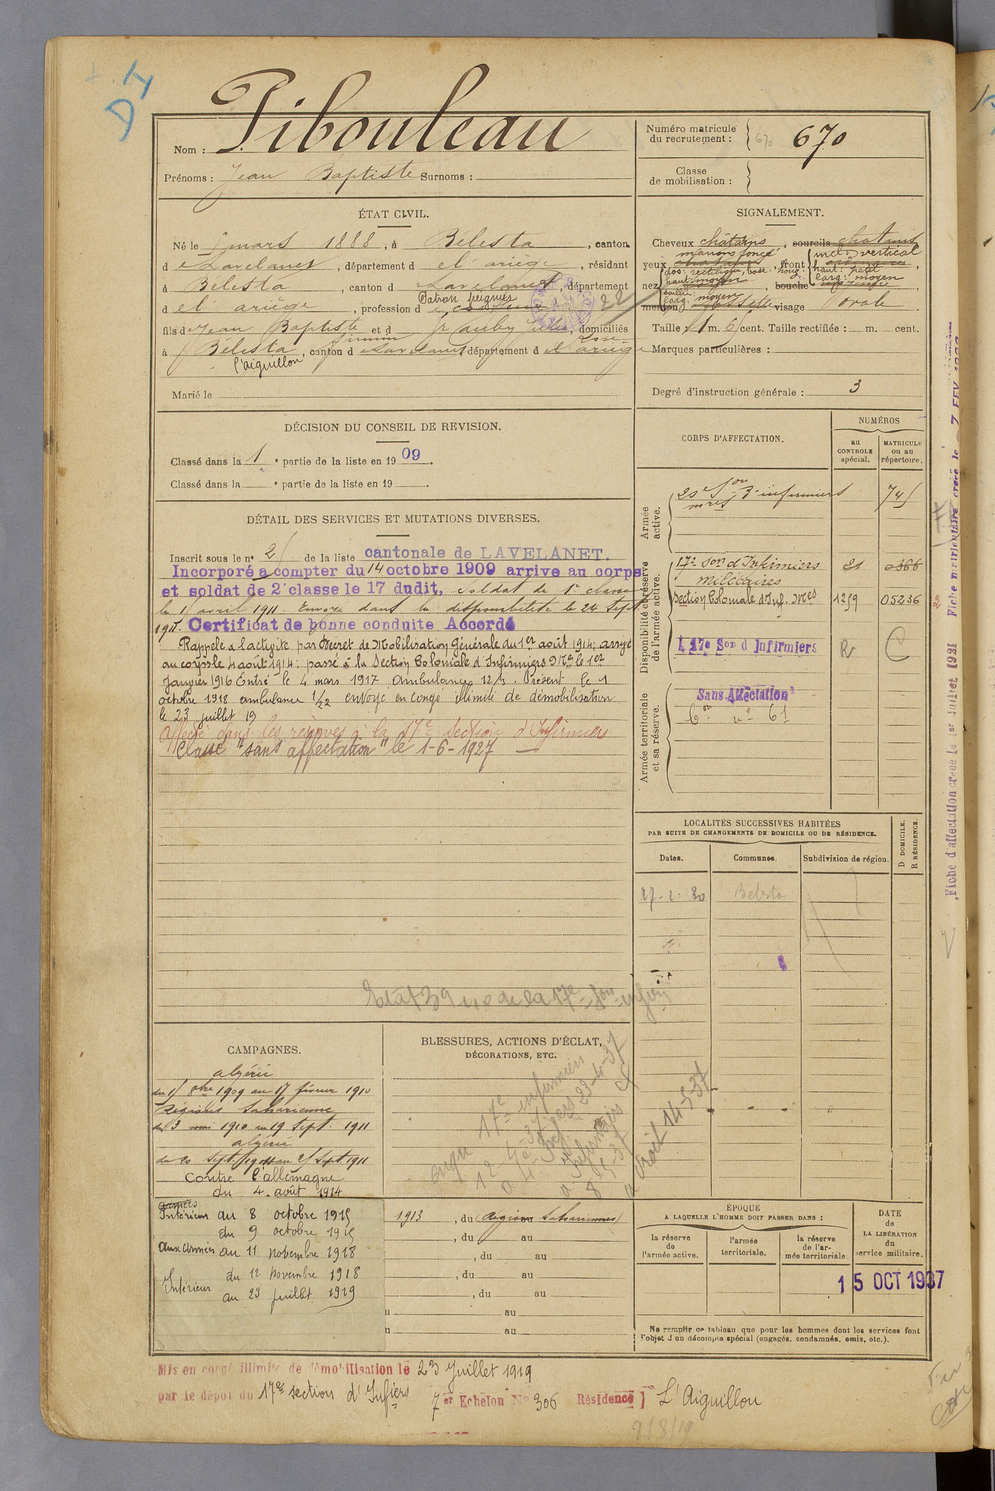 D I
Nom : Pibouleau
Numéro matricule du recrutement : 670
Prénoms : Jean Baptiste Surnoms :
Classe de mobilisation :
ÉTAT CIVIL.
Né le mars 1888, à Bélesta, canton
d e Lavelanet, département d el'ariège, résidant
à Bélesta, canton d Lavelanet, département
d el ariège, profession d Patron peignes
22
fils de Jean Baptiste et d , domiciliés
à Bélesta, canton d e Lavelanet département d el ariège
l'aiguillon
Marié le
SIGNALEMENT.
Cheveux châtains, sourcils chatains
marrons foncé incl: vertical
yeux front
dos: rectiligne, base: haut: petit
nez moyen larg: moyen bouche
menton visage ovale
Taille 1 m. 6 cent. Taille rectifiée : m. cent.
Marques particulières :
Degré d'instruction générale : 3
DÉCISION DU CONSEIL DE REVISION.
Classé dans la 1e partie de la liste en 1909.
Classé dans la e partie de la liste en 19
DÉTAIL DES SERVICES ET MUTATIONS DIVERSES.
Inscrit sous le n° de la liste cantonale de LAVELANET.
Incorporé a compter du 14 octobre 1909 arrive au corps
et soldat de 2e classe le 17 dudit, soldat de 1e classe
le 1 avril 1911. Envoyé dans la disponibilité le 24 Sept
1911. Certificat de bonne conduite Accordé
Rappelé a l'activité par Décret de Mobilisation Générale du 1er août 1914; arrivé
au corps le 4 août 1914; passé à la Section Coloniale d'Infirmiers Mres le 1er
Janvier 1916 Entré le 4 mars 1917 Ambulance 12/3. Présent le 1
octobre 1918 ambulance 1/22 envoyé en congé illimité de démobilisation
le 23 juillet 19
Affecté dans les réserves à la 17e section d'Infirmiers
Classé "sans affectation" le 1-6-1927
CORPS D'AFFECTATION.
NUMÉROS
au CONTROLE spécial.
MATRICULE ou au répertoire.
Armée active.
Son d'infirmiers
mres
Disponibilité et réserve de l'armée active.
17e Son d'Infirmiers 21
militaires
Section Coloniale d'Inf. Mres 1259 05236
17e Son d'Infirmiers R C
Armée territoriale et sa réserve.
Sans Affectation
n° 61
LOCALITÉS SUCCESSIVES HABITÉES
PAR SUITE DE CHANGEMENTS DE DOMICILE OU DE RÉSIDENCE.
Dates. Communes. Subdivision de région. D DOMICILE. R RÉSIDENCE.
Bélesta
CAMPAGNES.
algérie
1909 au 17 février 1910
Régions Sahariennes
du 3 mai 1910 au 19 Sept. 1911
algérie
du 20 Sept. 1911 au Sept 1911
Contre l'allemagne
du 4. août 1914
Intérieur au 8 octobre 1915
du 9 octobre 1915
aux armées au 11 novembre 1918
Intérieur du 12 novembre 1918
au 23 juillet 1919
BLESSURES, ACTIONS D'ÉCLAT, DÉCORATIONS, ETC.
17e infirmiers
a droit 14-5-37
1913, du (Régions Sahariennes)
, du au
, du au
, du au
, du au
au
au
ÉPOQUE
A LAQUELLE L'HOMME DOIT PASSER DANS :
la réserve de l'armée active.
l'armée territoriale.
la réserve de l'armée territoriale.
DATE DE LA LIBÉRATION du service militaire.
15 OCT 1937
Ne remplir ce tableau que pour les hommes dont les services font
l'objet d'un décompte spécial (engagés, condamnés, omis, etc.).
Mis en congé illimité de démobilisation le 23 Juillet 1919
par le dépôt du 17e section d'Infiers 7er Echelon N° 306 Résidence L'Aiguillon
9/8/19
Fiche d'affectation créée le 1er Juillet 1921
Fiche matriculaire créée le